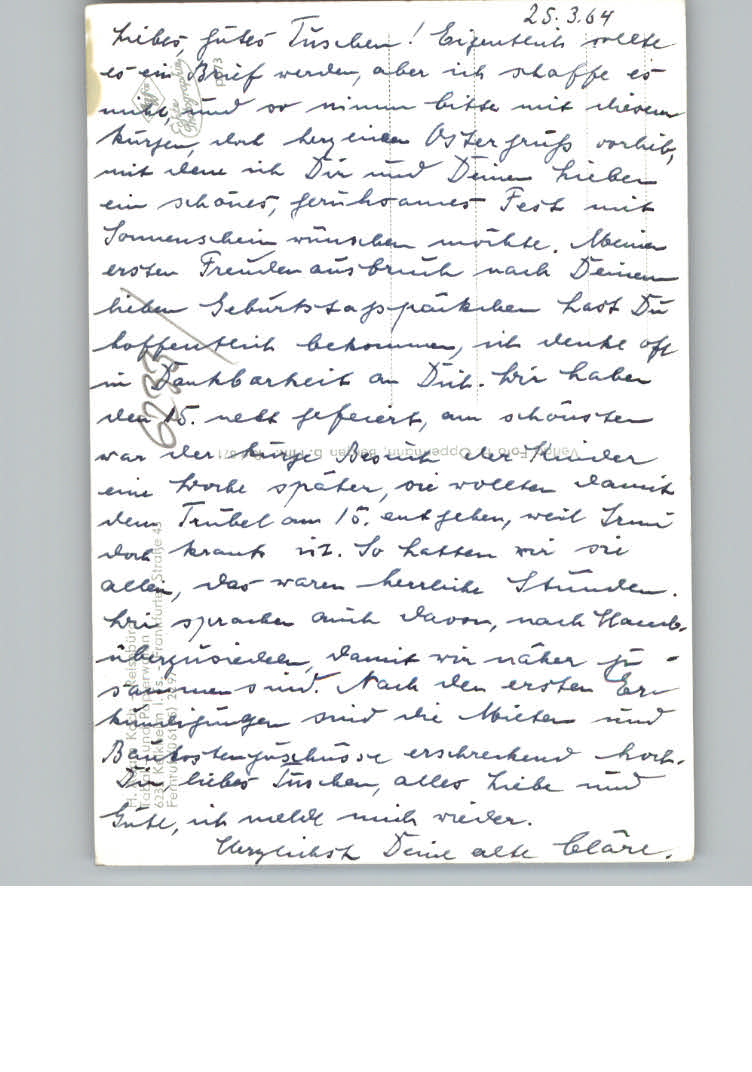 25.3.64
Liebes, gutes Tuschen! Eigentlich sollte
es ein Brief werden, aber ich schaffe es
nicht, und so nimm bitte mit diesem
kurzen, doch herzlichen Ostergruß vorlieb,
mit dem ich Dir und Deinen Lieben
ein schönes, geruhsames Fest mit
Sonnenschein wünschen möchte. Meinen
ersten Freudenausbruch nach Deinem
lieben Geburtstagspäckchen hast Du
hoffentlich bekommen, ich denke oft
in Dankbarkeit an Dich. Wir haben
den 15. nett gefeiert, am schönsten
war der kurze Besuch der Kinder
eine Woche später, sie wollten damit
dem Trubel am 15. entgehen, weil Irmi
doch krank ist. So hatten wir sie
allein, das waren herrliche Stunden.
Wir sprachen auch davon, nach Hamb.
überzusiedeln, damit wir näher zu-
sammen sind. Nach den ersten Er-
kundigungen sind die Mieten und
Baukostenzuschüsse erschreckend hoch.
Dir, liebes Tuschen, alles Liebe und
Gute, ich melde mich wieder.
Herzlichst Deine alte Cläre.
6233
Echte
Photographie
Verlag Foto Oppermann, Bergen b.
Reisebüro
Tabak- und Papierwaren
623 Kelkheim i. Ts. - Frankfurter Straße 45